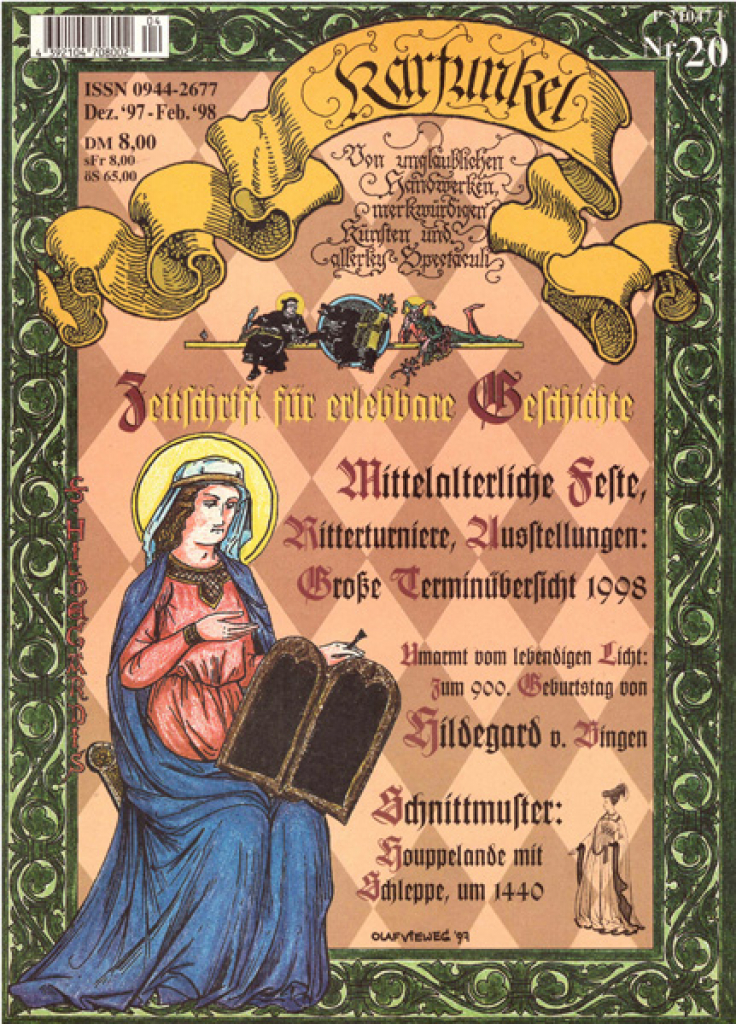 04
4 392104 708002
P 21047 F
Nr. 20
ISSN 0944-2677
Dez. ‘97 - Feb. ‘98
DM 8,00
sFr 8,00
öS 65,00
Karfunkel
Von unglaublichen
Handwerken,
merkwürdigen
Künsten und
allerley Spectaculi
Zeitſchrift für erlebbare Geſchichte
Mittelalterliche Feſte,
Ritterturniere, Ausſtellungen:
Große Terminüberſicht 1998
Umarmt vom lebendigen Licht:
Zum 900. Geburtstag von
Hildegard v. Bingen
Schnittmuſter:
Houppelande mit
Schleppe, um 1440
OLAF VIEWEG '97